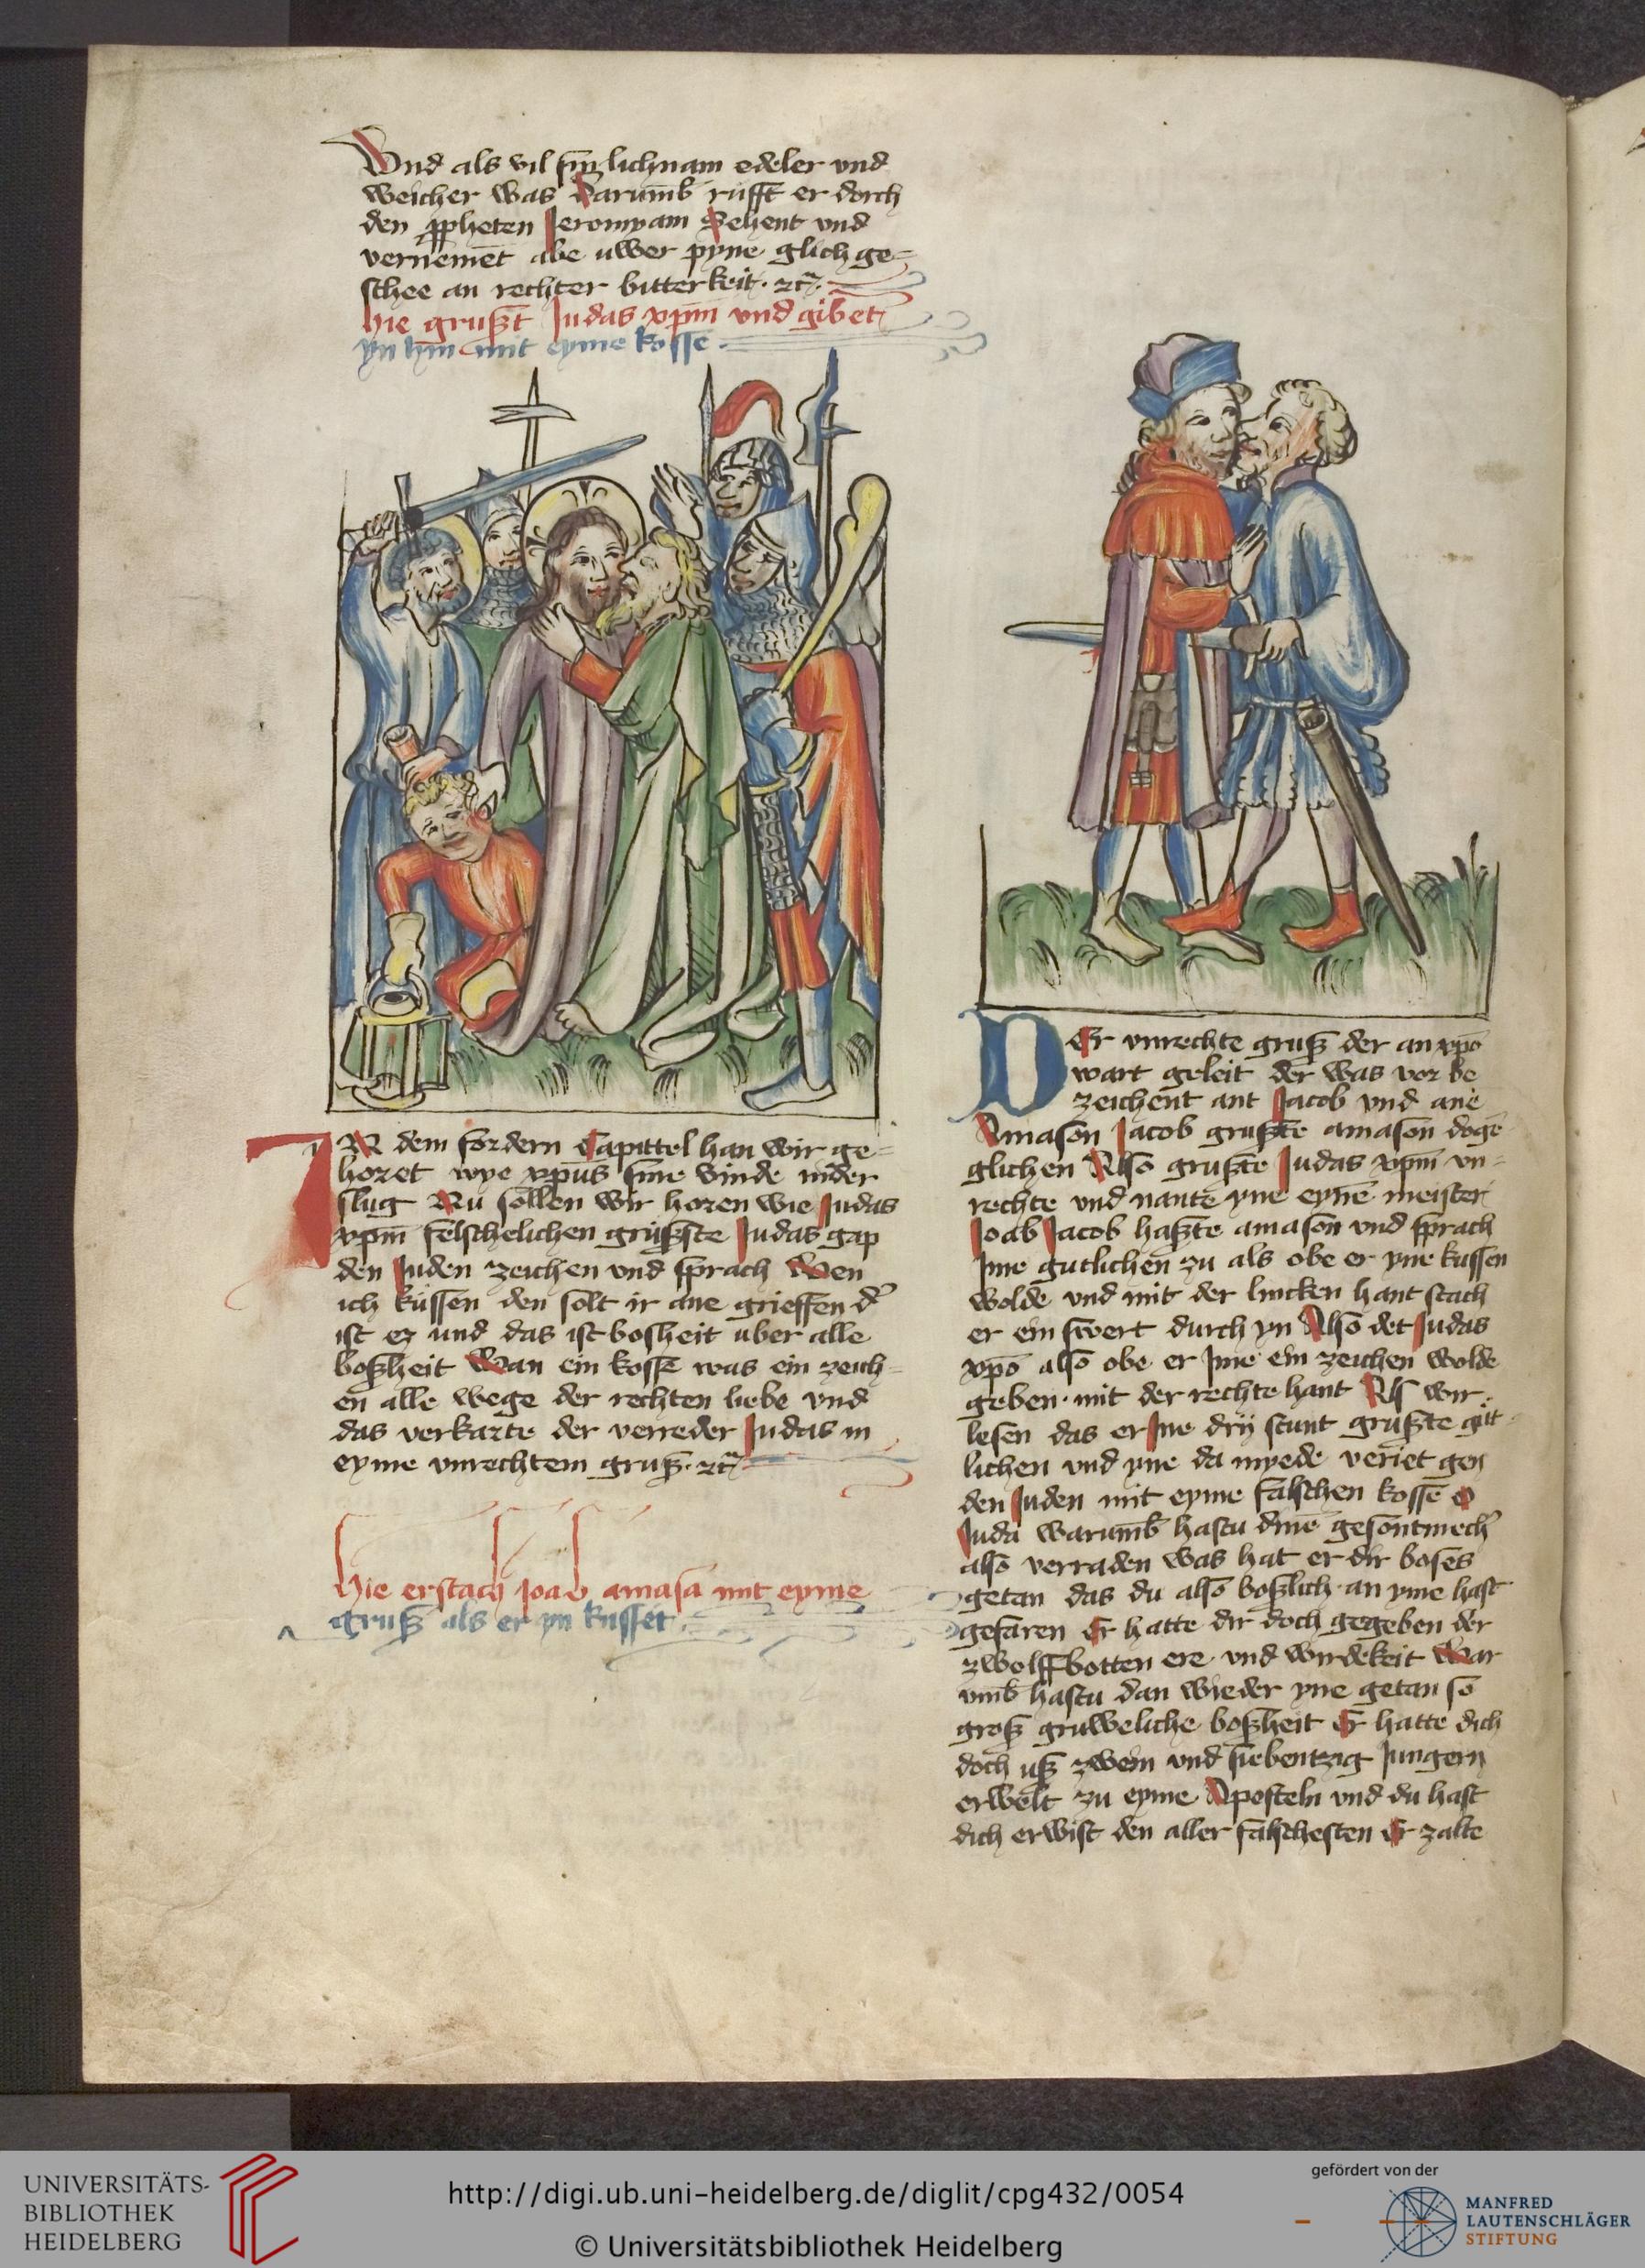 Vnd als vil sinz lichnam edeler vnd
weicher was Darumb rufft er dorch
den ppheten Jeromyam Sehent vnd
vernemēt abe uwer pyne glich ge=
schee an rechter bitterkeit · zc
hie grußt Judas xpm vnd gibet
yn hin mit eyme kosse
IN dem fordern Capittel han wir ge=
horet wye xpus sine vinde nider
slug Nu sollen wir horen wie Judas
xpm felschelichen grußste Judas gap
den Juden zeichen vnd sprach Wen
ich kussen den solt ir ane grieffen der
ist ez und das ist bosheit uber alle
boßheit Wan ein kosse was ein zeich=
en alle wege der rechten liebe vnd
das verkarte der verreder Judas in
eyme vnrechtem gruß · zc
hie erstach joab amasa mit eyme
gruß als er yn kusset
DEr vnrechte gruß der an xpo
wart geleit der was vor be
zeichent ant Jacob vnd ane
Amason Jacob grußte amason doge
glichen Also grußte Judas xpm vn=
rechte vnd nante yne eynē meister
Joab Jacob haßte amason vnd sprach
Jme gutlichen zu als obe er yne kussen
wolde vnd mit der lincken hant stach
er ein swert durch yn Also det Judas
xpo also obe er Jme ein zeichen wolde
geben · mit der rechte hant Als wir
lesen das er Jme drij stunt grußte gut
lichen vnd yne da myede veriet gen
den Juden mit eyme falschen kosse o
Juda warumb hastu dinē gesontmech
also verraden was hat er dir boses
getan das du also boßlich an yme hast
gefaren Er hatte dir doch gegeben der
zwolffbotten ere vnd wirdekeit War
vmb hastu dan wieder yne getan so
groß gruweliche boßheit Er hatte dich
doch uß zwein vnd siebentzig Jungern
erwelt zu eyme Aposteln vnd du hast
dich erwist den aller falschesten Er zalte
UNIVERSITÄTS-
BIBLIOTHEK
HEIDELBERG
http://digi.ub.uni-heidelberg.de/diglit/cpg432/0054
© Universitätsbibliothek Heidelberg
gefördert von der
MANFRED
LAUTENSCHLÄGER
STIFTUNG